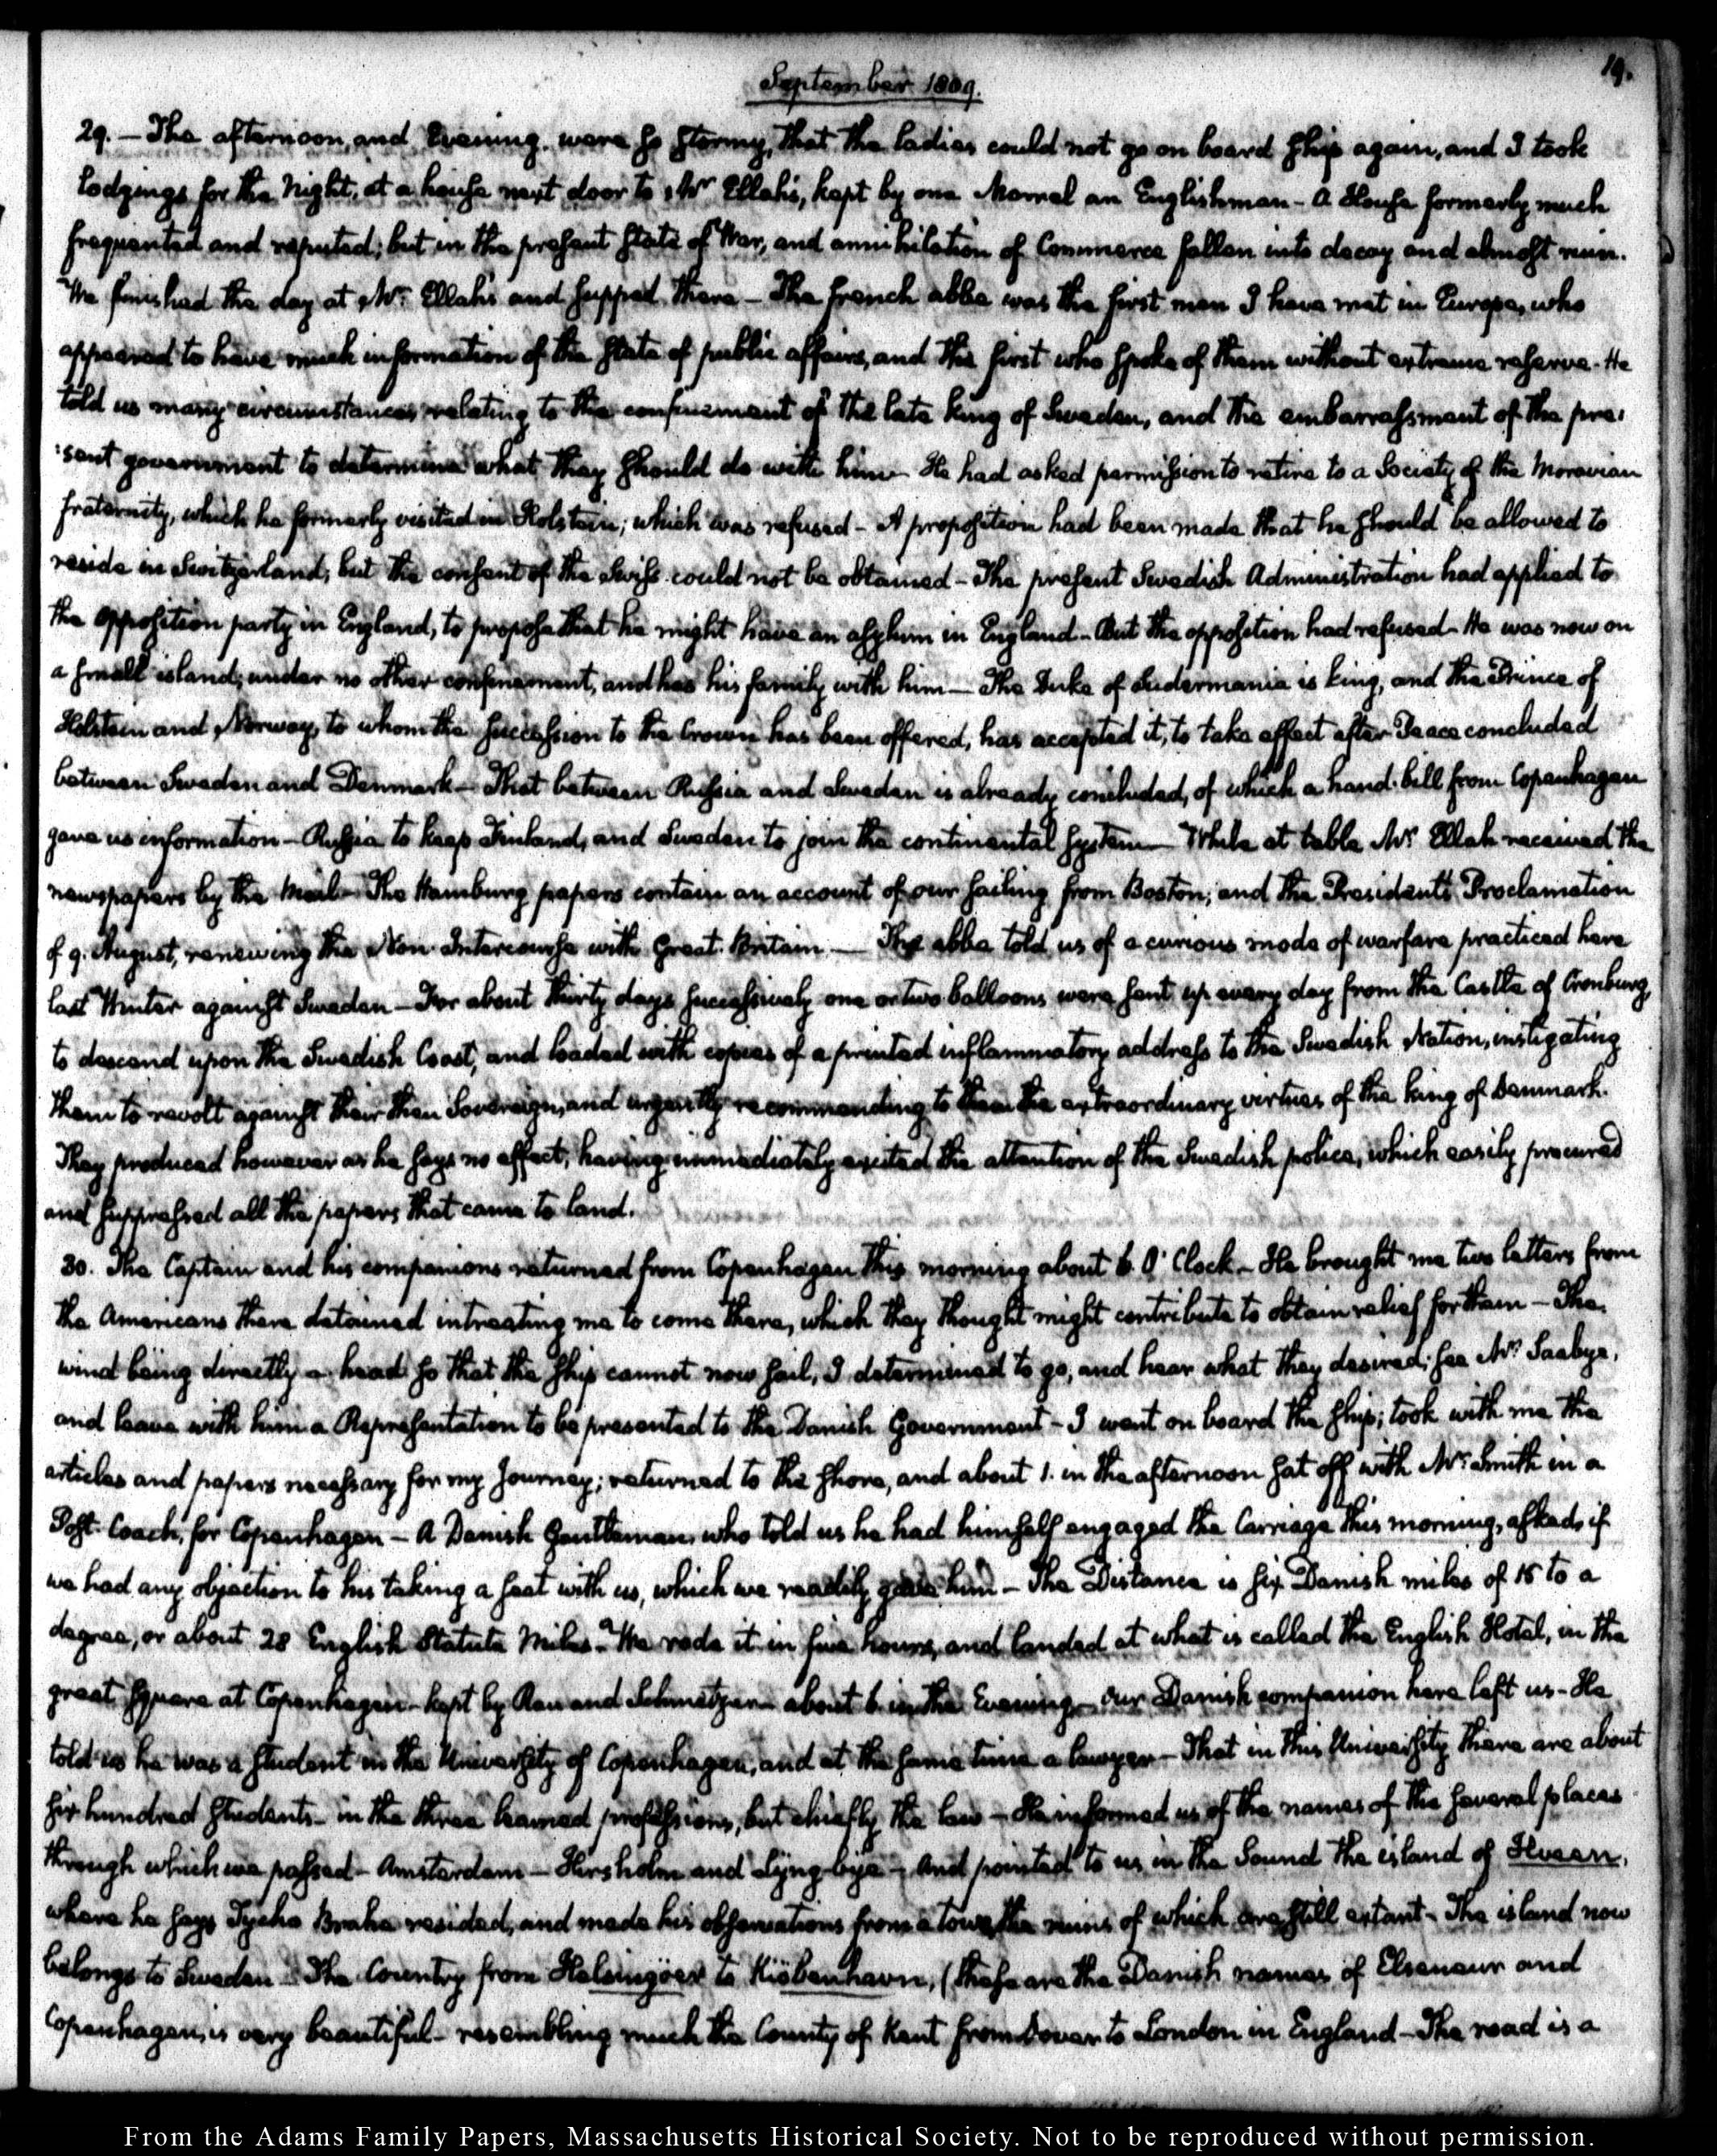 19.
September 1809.
29. — The afternoon, and Evening. were so stormy, that the ladies could not go on board ship again, and I took
lodgings for the Night, at a house next door to Mr Ellah's, kept by one an Englishman - A House formerly much
frequented and reputed; but in the present state of War, and annihilation of Commerce fallen into decay and almost ruin.
We finished the day at Mr Ellah's and supped there — The french abbe was the first man I have met in Europe, who
appeared to have much information of the state of public affairs, and the first who spoke of them without extreme reserve. He
told us many circumstances relating to the confinement of the late king of Sweden, and the embarrassment of the pre:
:sent government to determine what they should do with him— He had asked permission to retire to a Society of the Moravian
fraternity, which he formerly visited in Holstein; which was refused - A proposition had been made that he should be allowed to
reside in Switzerland; but the consent of the Swiss could not be obtained - The present Swedish Administration had applied to
the opposition party in England, to propose that he might have an asylum in England - But the opposition had refused - He was now on
a small island; under no other confinement, and has his family with him — The Duke of Sudermania is king, and the Prince of
Holstein and Norway, to whom the succession to the Crown has been offered, has accepted it, to take effect after Peace concluded
between Sweden and Denmark — That between Russia and Sweden is already concluded, of which a hand-bill from Copenhagen
gave us information - Russia to keep Finland, and Sweden to join the continental system — While at table Mr Ellah received the
newspapers by the Mail - The Hamburg papers contain an account of our sailing from Boston; and the President's Proclamation
of 9. August, renewing the Non-Intercourse with Great-Britain. — The abbe told us of a curious mode of warfare practiced here
last Winter against Sweden — For about thirty days successively one or two balloons were sent up every day from the Castle of Cronburg,
to descend upon the Swedish Coast, and loaded with copies of a printed inflammatory address to the Swedish Nation, instigating
them to revolt against their then Sovereign, and urgently recommending to them the extraordinary virtues of the king of Denmark.
They produced however as he says no effect; having immediately excited the attention of the Swedish police, which easily procured
and suppressed all the papers that came to land.
30. The Captain and his companions returned from Copenhagen this morning about 6. O' Clock - He brought me two letters from
the Americans there detained intreating me to come there, which they thought might contribute to obtain relief for them — The
wind being directly a-head so that the ship cannot now sail, I determined to go, and hear what they desired; see Mr Saabye,
and leave with him a Representation to be presented to the Danish Government - I went on board the ship; took with me the
articles and papers necessary for my Journey; returned to the shore, and about 1. in the afternoon sat off with Mr Smith in a
Post-Coach, for Copenhagen — A Danish Gentleman, who told us he had himself engaged the Carriage this morning, asked, if
we had any objection to his taking a seat with us, which we readily gave him — The Distance is six Danish miles of 15 to a
degree, or about 28 English Statute Miles. We rode it in five hours, and landed at what is called the English Hotel, in the
great square at Copenhagen - kept by Rau and Schmetzer — about 6 in the Evening — Our Danish companion here left us - He
told us he was a student in the University of Copenhagen, and at the same time a lawyer — That in this University there are about
six hundred students - in the three learned professions, but chiefly the law — He informed us of the names of the several places
through which we passed - Amsterdam — Hirsholm and Lyng-bye - And pointed to us in the Sound the island of Hveen,
where he says Tycho Brahe resided, and made his observations from a tower the ruins of which are still extant - The island now
belongs to Sweden - The Country from Helsingöer to Kiöbenhavn, (these are the Danish names of Elseneur and
Copenhagen, is very beautiful - resembling much the County of Kent from Dover to London in England - The road is a
From the Adams Family Papers, Massachusetts Historical Society. Not to be reproduced without permission.